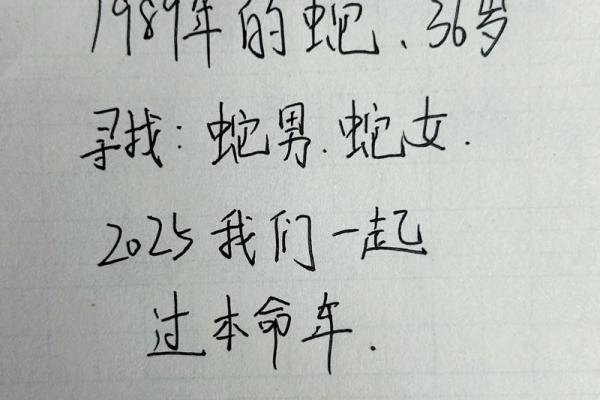 1989年的蛇、36岁
寻找:蛇男.蛇女.
2025我们一起
过本命年.